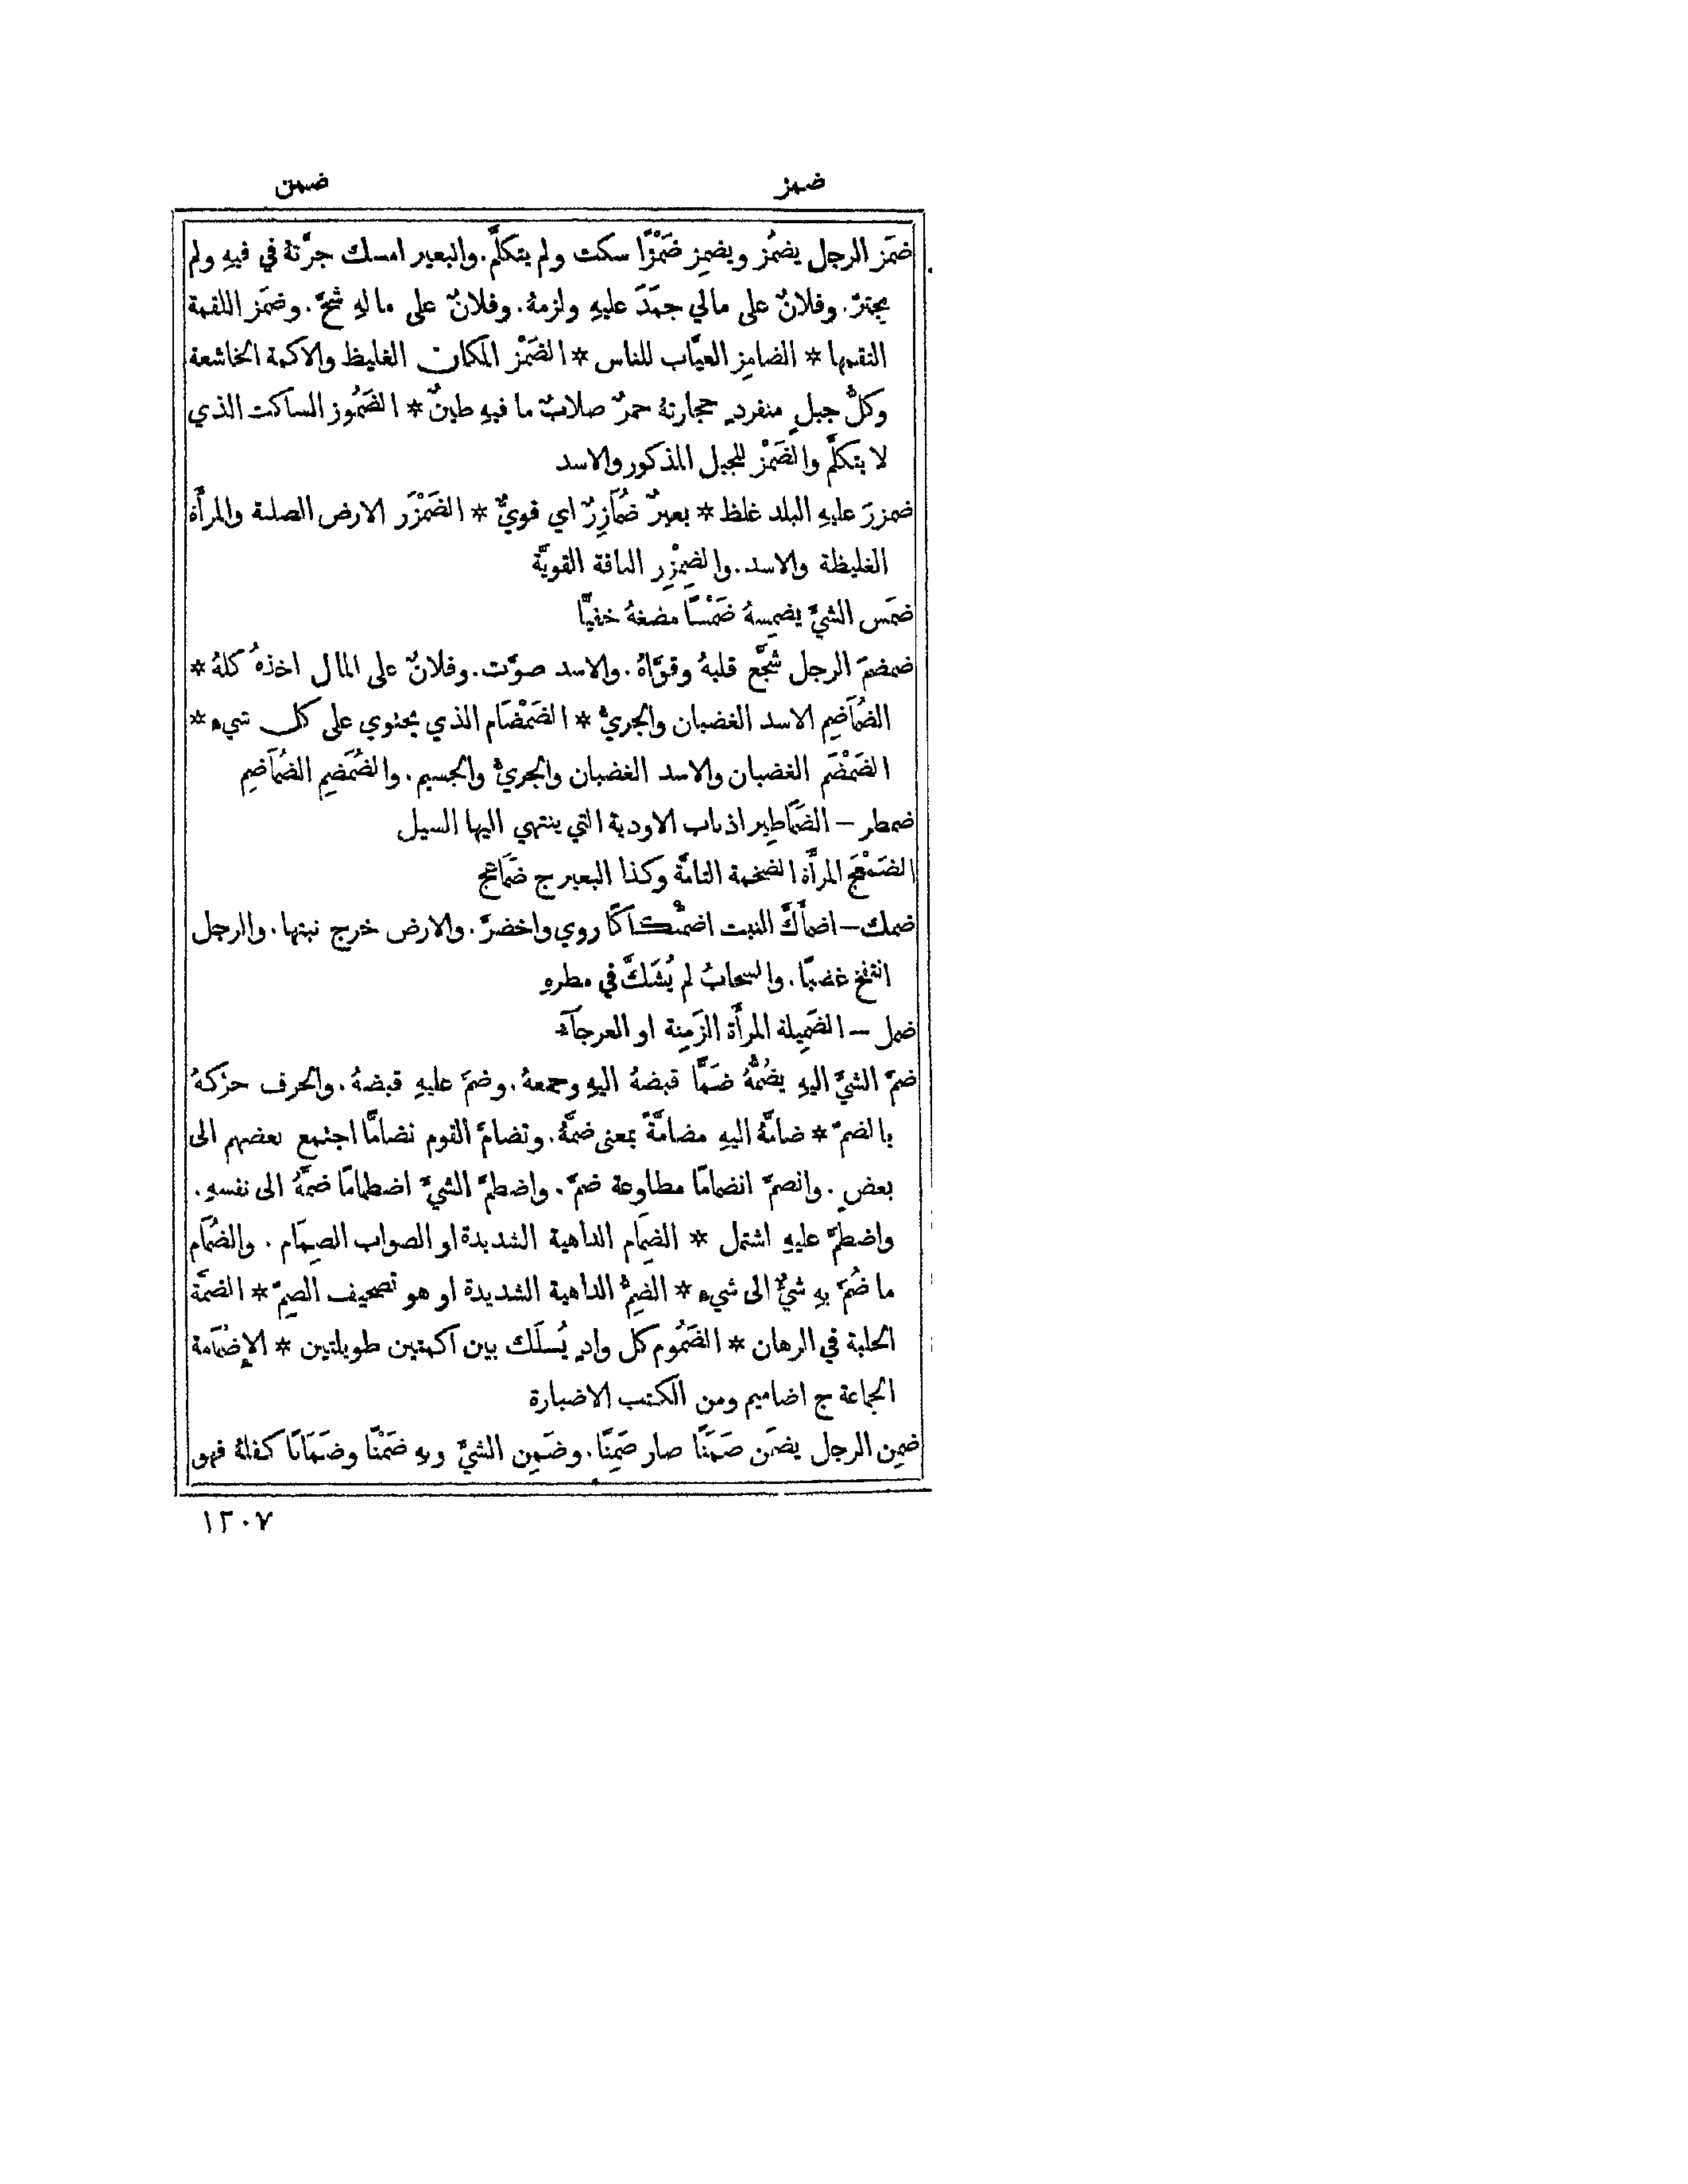 ضمز
ضمن
ضمَز الرجل يضمُز ويضمِز ضَمْزًا سكت ولم يتكلَّم. والبعير امسك جرَّتهُ في فيهِ ولم
يجترَّ. وفلانٌ على مالي جمَدَ عليهِ ولزمهُ. وفلانٌ على مالهِ شحَّ. وضمَز اللقمة
التقمها * الضامِز العيَّاب للناس * الضَمْز المكان الغليظ والاكمة الخاشعة
وكلُّ جبلٍ منفردٍ حجارتهُ حمرٌ صلابٌ ما فيهِ طينٌ * الضَمُوز الساكت الذي
لا يتكلَّم والضَمْز للجبل المذكور والاسد
ضمزرَ عليهِ البلد غلظ * بعيرٌ ضُمَازِرٌ اي قويٌّ * الضَمْزَر الارض الصلبة والمرأَة
الغليظة والاسد. والضِمْزِر الناقة القويَّة
ضمَس الشيَّ يضمِسهُ ضَمْسًا مضغهُ خفيًّا
ضمضمَ الرجل شجَّع قلبهُ وقوَّاهُ. والاسد صوَّت. وفلانٌ على المال اخذهُ كلهُ *
الضُمَاضِم الاسد الغضبان والجريُّ * الضَمْضَام الذي يحتوي على كل شيء *
الضَمْضَم الغضبان والاسد الغضبان والجريُّ والجسيم. والضُمَضِم الضُمَاضِم
ضمطر – الضَمَاطِير اذناب الاودية التي ينتهي اليها السيل
الضَمْعَج المرأَة الضخمة التامَّة وكذا البعير ج ضَمَاعِج
ضمك – اضمأَكَّ النبت اضمئكاكًا روي واخضرَّ. والارض خرج نبتها. والرجل
انتفخ غضبًا. والسحابُ لم يُشَكَّ في مطرهِ
ضمل – الضَمِيلة المرأَة الزَمِنة او العرجآء
ضمَّ الشيَّ اليهِ يضُمُّهُ ضَمًّا قبضهُ اليهِ وجمعهُ. وضمَّ عليهِ قبضهُ. والحرف حرَّكهُ
بالضمّ * ضامَّهُ اليهِ مضامَّةً بمعنى ضمَّهُ. وتضامَّ القوم تضامًّا اجتمع بعضهم الى
بعضٍ. وانضمَّ انضمامًا مطاوعة ضمَّ. واضطمَّ الشيَّ اضطمامًا ضمَّهُ الى نفسهِ.
واضطمَّ عليهِ اشتمل * الضِمَام الداهية الشديدة او الصواب الصِمَام. والضُمَام
ما ضُمَّ بهِ شيءٌ الى شيء * الضِمُّ الداهية الشديدة او هو تصحيف الصِمّ * الضمَّة
الحلبة في الرهان * الضَمُوم كل وادٍ يُسلَك بين اكمتين طويلتين * الإِضْمَامة
الجماعة ج اضاميم ومن الكتب الاضبارة
ضمِن الرجل يضمَن ضَمَنًا صار ضَمِنًا. وضَمِن الشيَّ وبهِ ضَمْنًا وضَمَانًا كفلهُ فهو
١٢٠٧